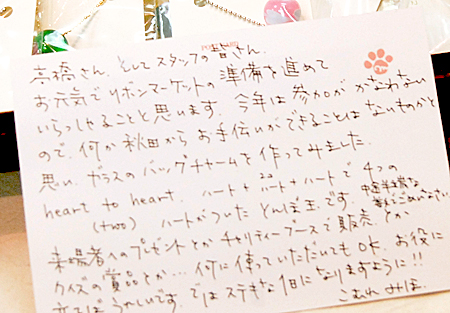 高橋さん、そしてスタッフの皆さん、
お元気でリボンマーケットの準備を進めて
いらっしゃることと思います。今年は参加がかなわない
ので、何か秋田からお手伝いができることはないものかと
思い、ガラスのバッグチャームを作ってみました。
heart to heart. ハート＋ハート＋ハートで4つの
(two) ハートがついたとんぼ玉です。
中途半端な
数でごめんなさい
来場者へのプレゼントとかチャリティーブースで販売とか
クイズの賞品とか…何に使っていただいてもOK。お役に
立てばうれしいです。ではステキな1日になりますように!!
みほ